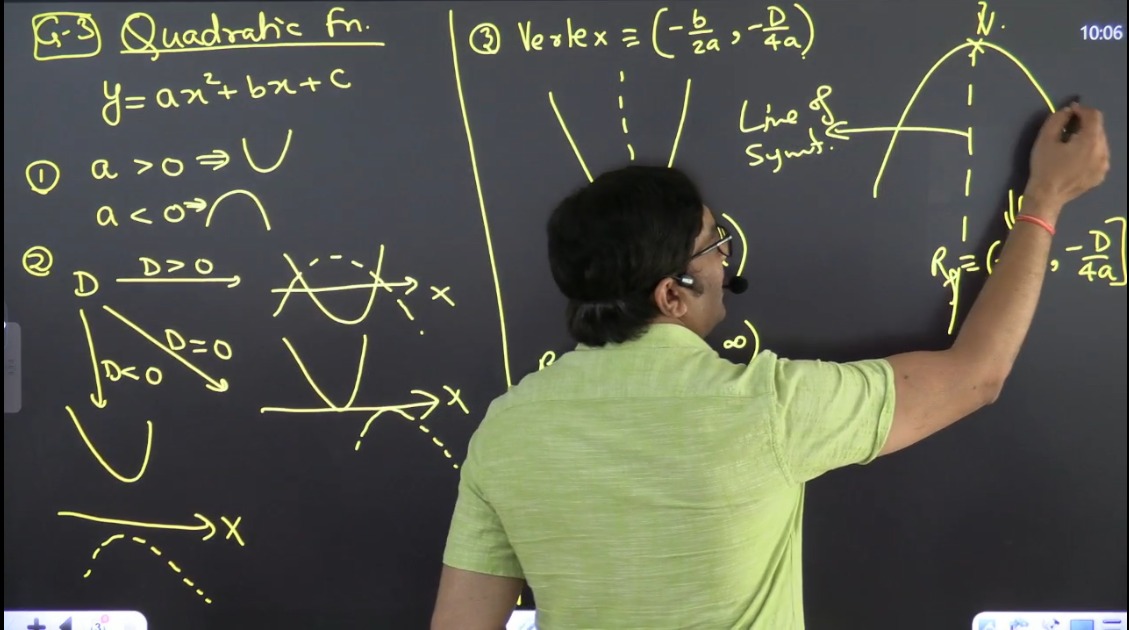 G-3 Quadratic fn.
y = ax² + bx + c
① a > 0 ⇒
a < 0 →
② D D > 0 X
D = 0
D < 0
X
X
③ Vertex ≡ (-b/2a, -D/4a)
V.
10:06
Line of
Symt.
)
Rg ≡ ( , -D/4a]
∞)